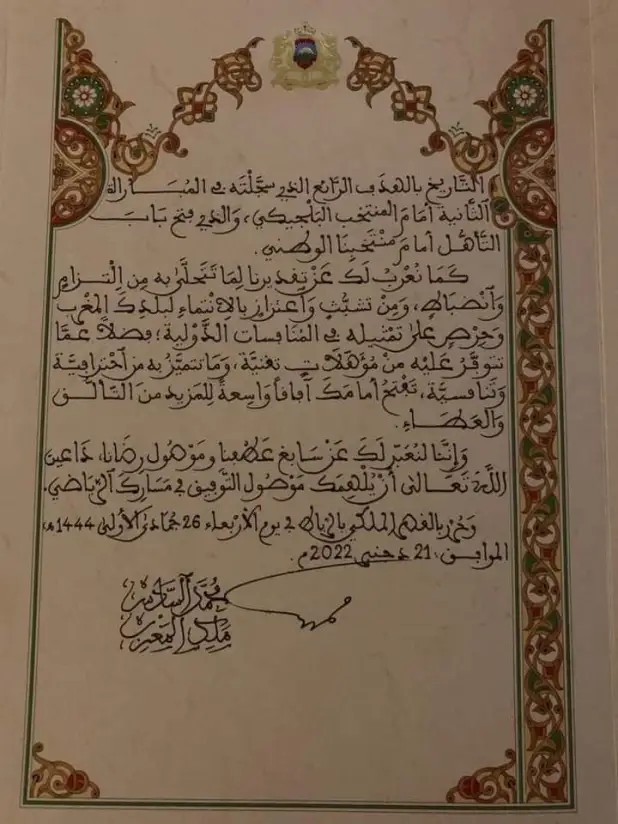 التاريخ بالهدف الرائع الذي سجلته في المباراة
الثانية أمام المنتخب البلجيكي، والذي فتح باب
التأهل أمام منتخبنا الوطني.
كما نعرب لك عن تقديرنا لما تتحلى به من التزام
وانضباط، ومن تشبث واعتزاز بالانتماء لبلدك المغرب
وحرص على تمثيله في المنافسات الدولية؛ فضلا عما
تتوفر عليه من مؤهلات تقنية، وما تتميز به من احترافية
وتنافسية، تفتح أمامك آفاقا واسعة للمزيد من التألق
والعطاء.
وإننا لنعبر لك عن سابغ عطفنا وموصول رضانا، داعين
الله تعالى أن يلهمك موصول التوفيق في مسارك الرياضي.
وحرر بالقصر الملكي بالرباط في يوم الأربعاء 26 جمادى الأولى 1444 هـ،
الموافق: 21 دجنبر 2022 م.
محمد السادس
ملك المغرب